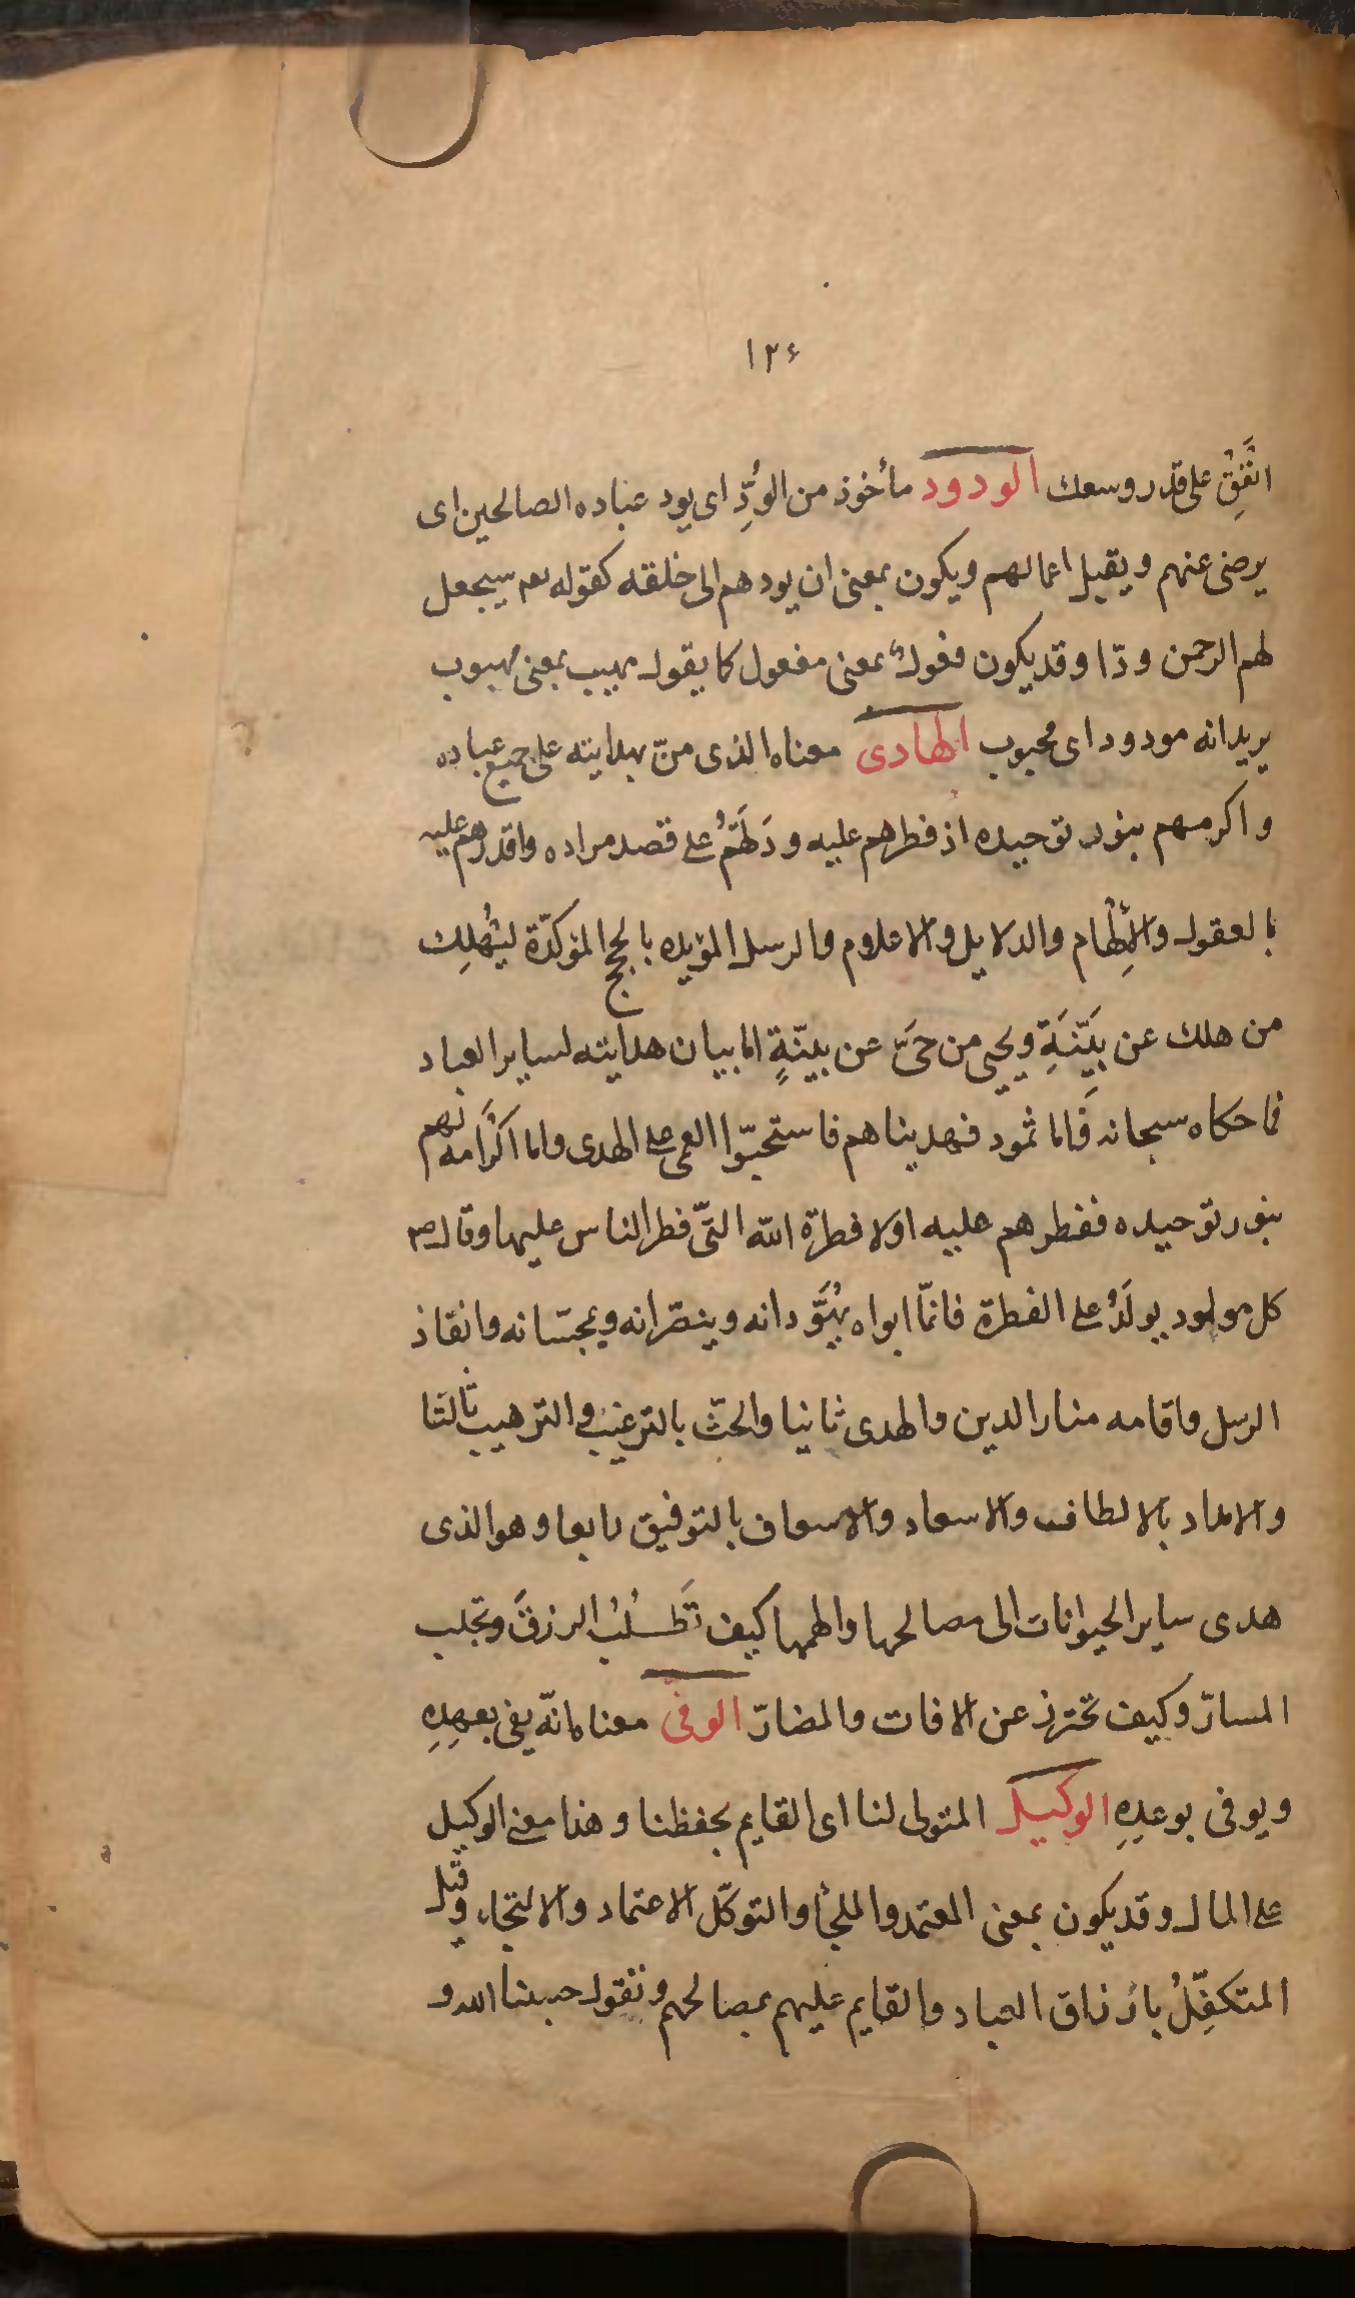 ١٢۶
انْفِقْ على قدر وسعك الودود مأخوذ من الوُدِّ اى يود عباده الصالحين اى
يرضى عنهم ويقبل اعمالهم ويكون بمعنى ان يودهم الى خلقه كقوله تعـ سيجعل
لهم الرحمن ودّا وقد يكون فعولٌ بمعنى مفعول كما يقول مهيب بمعنى مهيوب
يريد انه مودود اى محبوب الهادى معناه الذى منّ بهدايته على جميع عباده
واكرمهم بنور توحيده اذ فطرهم عليه ودَلَّهُمْ على قصد مراده واقدرهم عليه
بالعقول والإلْهام والدلايل والاعلام والرسل المؤيده بالحجج المؤكدّة ليَهْلِك
من هلك عن بيّنَةٍ ويحيى من حَىَّ عن بيّنةٍ اما بيان هدايته لساير العباد
فما حكاه سبحانه فَاما ثمود فهديناهم فاستحبّوا العمى على الهدى واما اكرامه لهم
بنور توحيده ففطرهم عليه اولا فطرة الله التّى فطر الناس عليها وقال ص
كل مولود يولَدُ على الفطرة فانمّا ابواه يُهَوّدانه وينصّرانه ويمجسّانه وانقاذ
الرسل واقامه منار الدين والهدى ثانيا والحثّ بالترغيب والترهيب ثالثا
والامداد بالالطاف والاسعاد والاسعاف بالتوفيق رابعا وهو الذى
هدى ساير الحيوانات الى مصالحها والهمها كيف تَطْلُبُ الرزقَ وتجلب
المسارّ وكيف تحترز عن الافات والمضارّ الوفىّ معناه انّه يفى بعهدِهِ
ويوفى بوعدِهِ الوكيل المتولى لنا اى القايم بحفظنا وهذا معنى الوكيل
على المال وقد يكون بمعنى المعتمد والملجأ والتوكّل الاعتماد والالتجاء وقيل
المتكفّلُ بارزاق العباد والقايم عليهم بمصالحهم ونقول حسبنا الله و